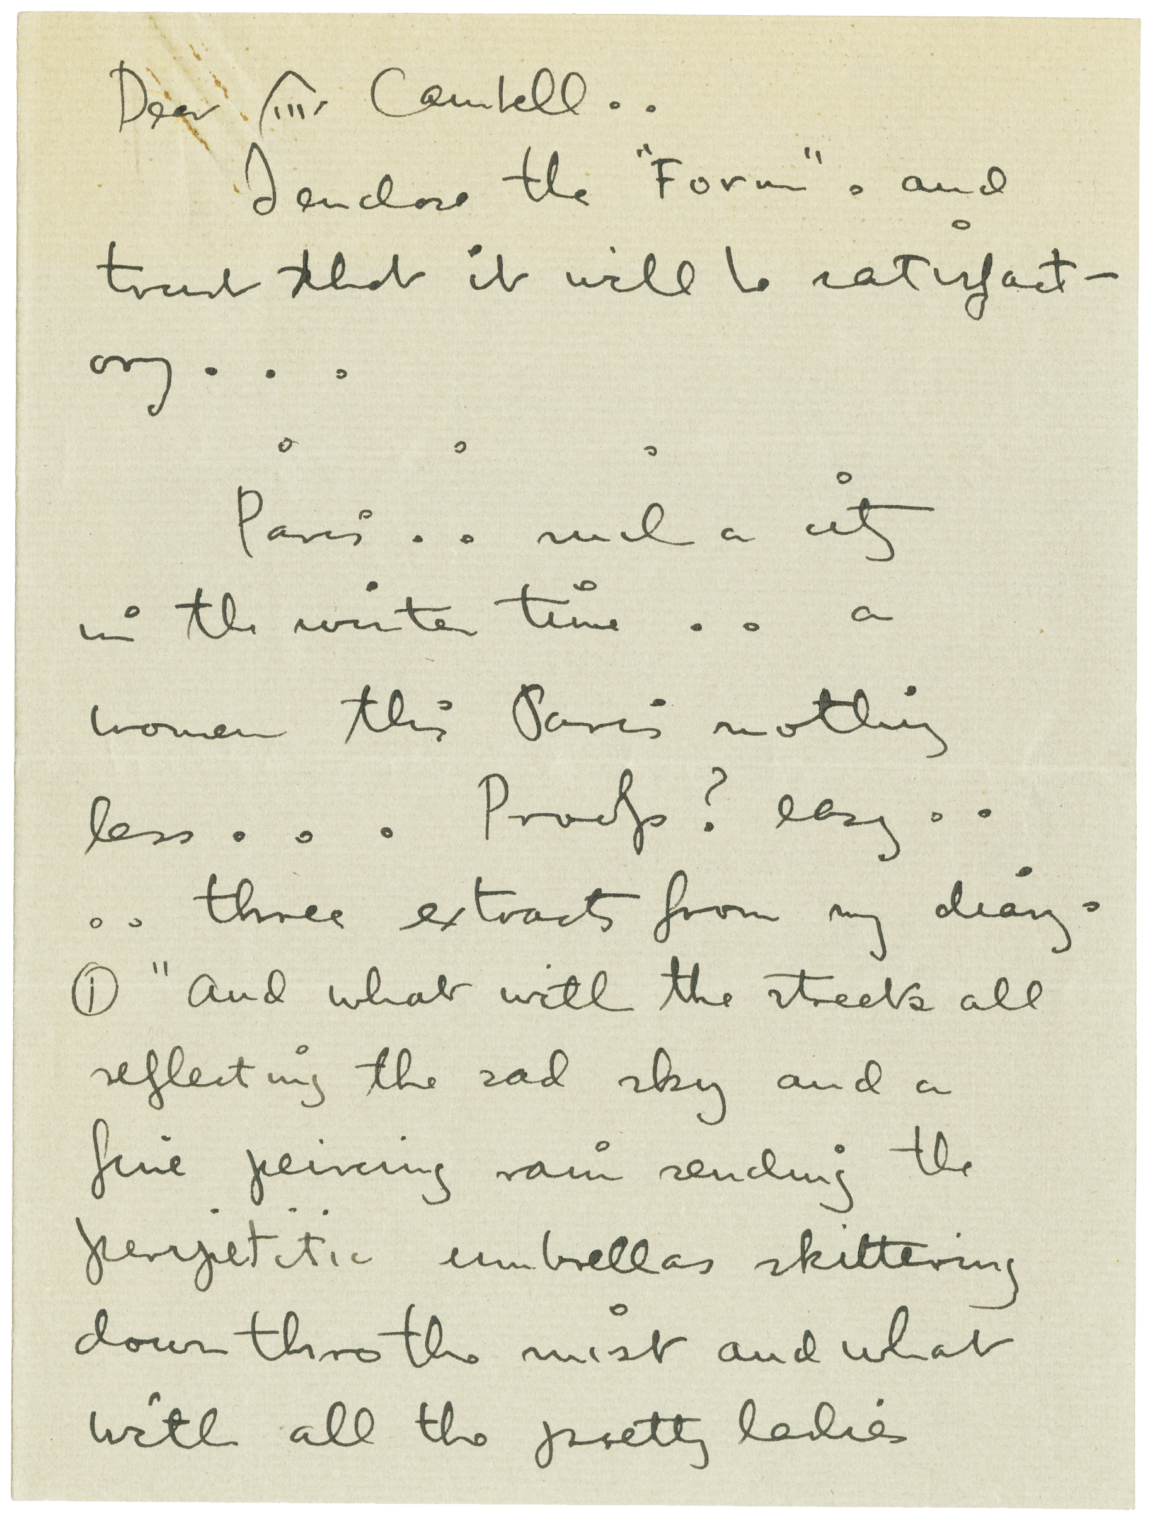 Dear Mr Cambell..
I enclose the "Form". and
trust that it will be satisfact-
ory...
. . .
Paris.. such a city
in the winter time.. a
women this Paris nothing
less... Proofs? easy..
.. three extracts from my diary.
① "And what with the streets all
reflecting the sad sky and a
fine peircing rain sending the
peripetitic umbrellas skittering
down thro the mist and what
with all the pretty ladies